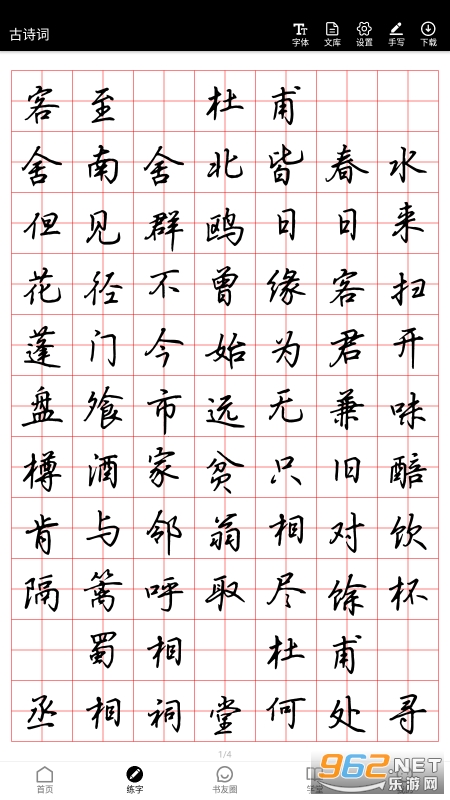 古诗词
字体 文库 设置 手写 下载
客至 杜甫
舍南舍北皆春水
但见群鸥日日来
花径不曾缘客扫
蓬门今始为君开
盘飧市远无兼味
樽酒家贫只旧醅
肯与邻翁相对饮
隔篱呼取尽馀杯
蜀相 杜甫
丞相祠堂何处寻
1/4
首页 练字 书友圈
962.NET
乐游网